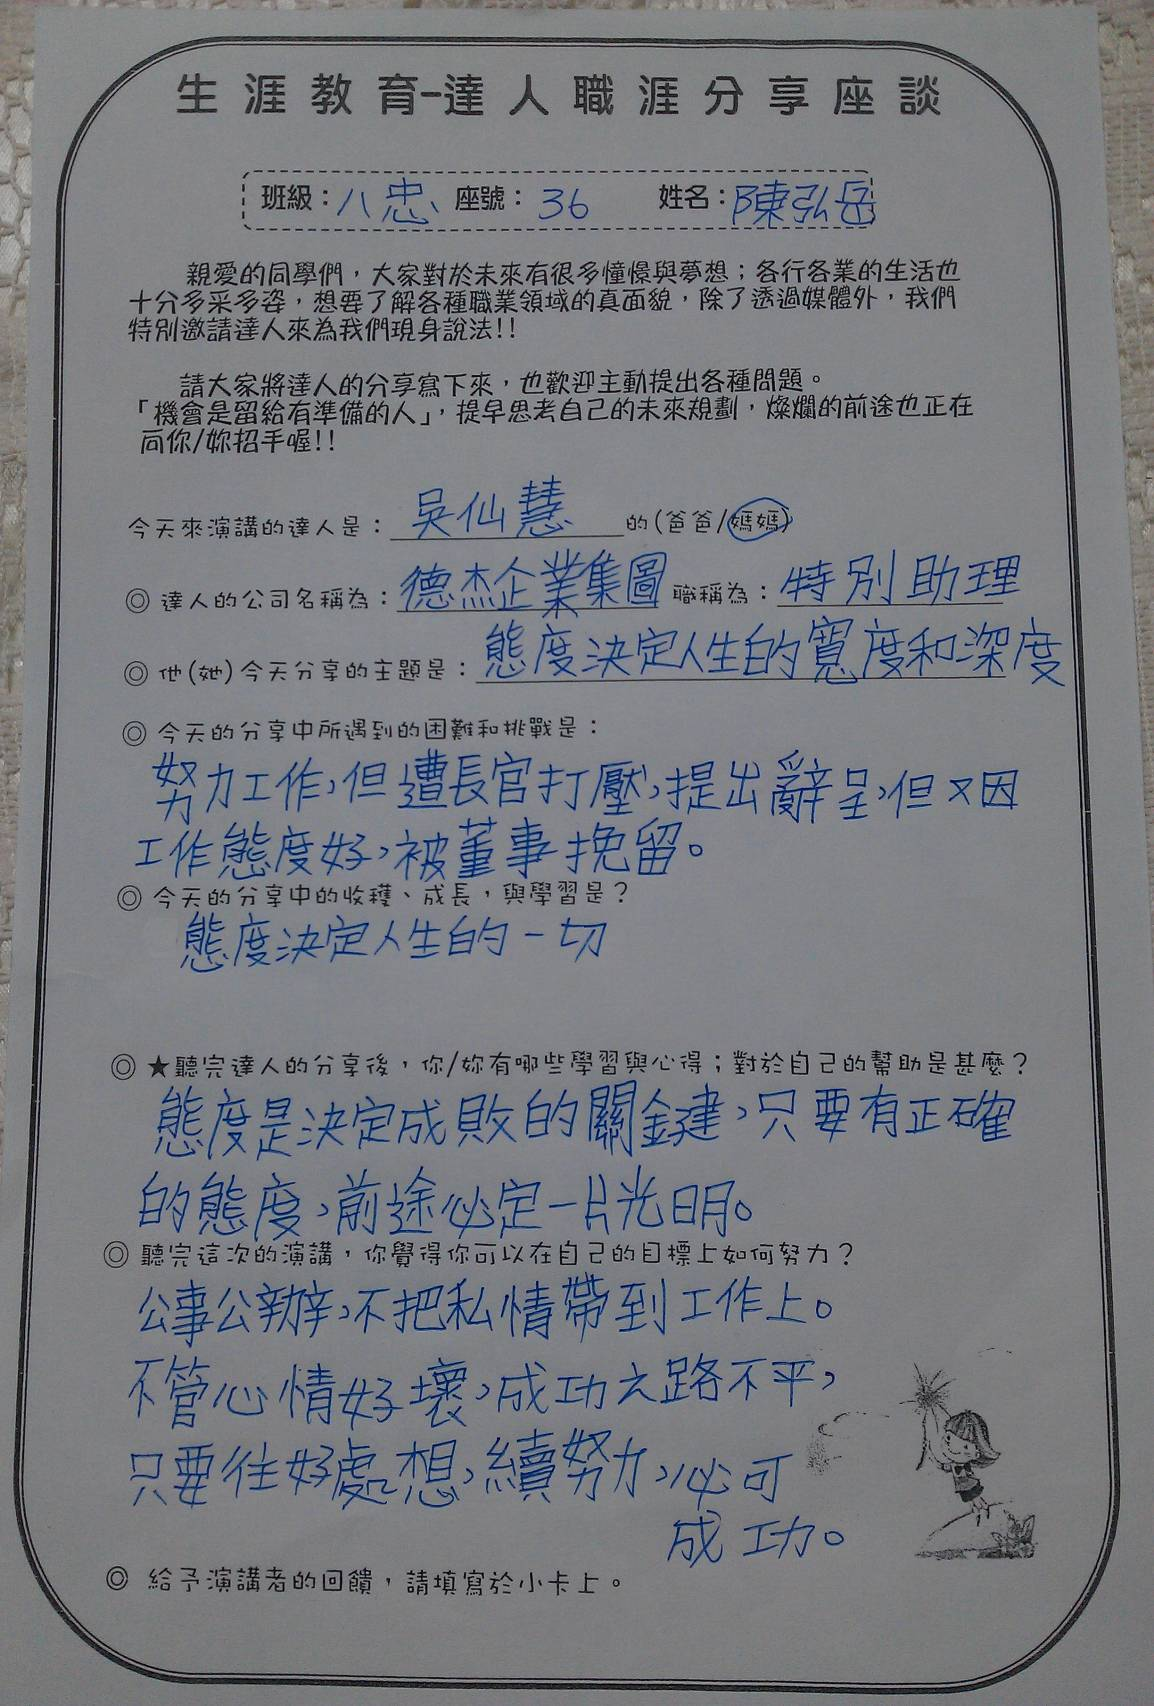 生涯教育-達人職涯分享座談
班級：八忠 座號：36 姓名：陳弘岳
親愛的同學們，大家對於未來有很多憧憬與夢想；各行各業的生活也
十分多采多姿，想要了解各種職業領域的真面貌，除了透過媒體外，我們
特別邀請達人來為我們現身說法!!
請大家將達人的分享寫下來，也歡迎主動提出各種問題。
「機會是留給有準備的人」，提早思考自己的未來規劃，燦爛的前途也正在
向你/妳招手喔!!
今天來演講的達人是：吳仙慧的(爸爸/媽媽)
◎ 達人的公司名稱為：德杰企業集圖 職稱為：特別助理
◎ 他(她)今天分享的主題是：態度決定人生的寬度和深度
◎ 今天的分享中所遇到的困難和挑戰是：
努力工作，但遭長官打壓，提出辭呈，但又因
工作態度好，被董事挽留。
◎ 今天的分享中的收穫、成長，與學習是？
態度決定人生的一切
◎ ★聽完達人的分享後，你/妳有哪些學習與心得；對於自己的幫助是甚麼？
態度是決定成敗的關鍵，只要有正確
的態度，前途必定一片光明。
◎ 聽完這次的演講，你覺得你可以在自己的目標上如何努力？
公事公辦，不把私情帶到工作上。
不管心情好壞，成功之路不平，
只要往好處想，續努力，必可
成功。
◎ 給予演講者的回饋，請填寫於小卡上。